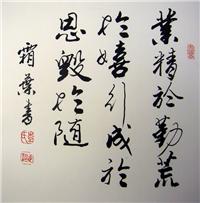 業精於勤荒
於嬉行成於
思毀於隨
霜葉書